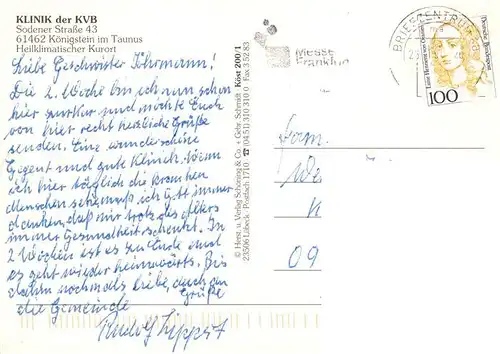 KLINIK der KVB
Sodener Straße 43
61462 Königstein im Taunus
Heilklimatischer Kurort
Liebe Geschwister
Die 2. Woche bin ich nun schon
hier zur Kur und möchte Euch
von hier recht herzliche Grüße
senden. Eine wunderschöne
Gegend und gute Klinik. Wenn
ich hier täglich die kranken
Menschen sehe, muß ich Gott immer
danken, daß mir trotz des Alters
immer Gesundheit schenkt. In
2 Wochen ist es zu Ende und
es geht wieder heimwärts. Bis
dahin nochmals liebe, auch an
die Gemeinde Grüße
Rudolf Lippert
© Herst. u. Verlag Schöning & Co. + Gebr. Schmidt Köst 200/1
23506 Lübeck · Postfach 1710 · ☎ (04 51) 310 310 Fax 3 52 83
Messe
Frankfurt
BRIEFZENTRUM
Deutsche Bundespost
100
09